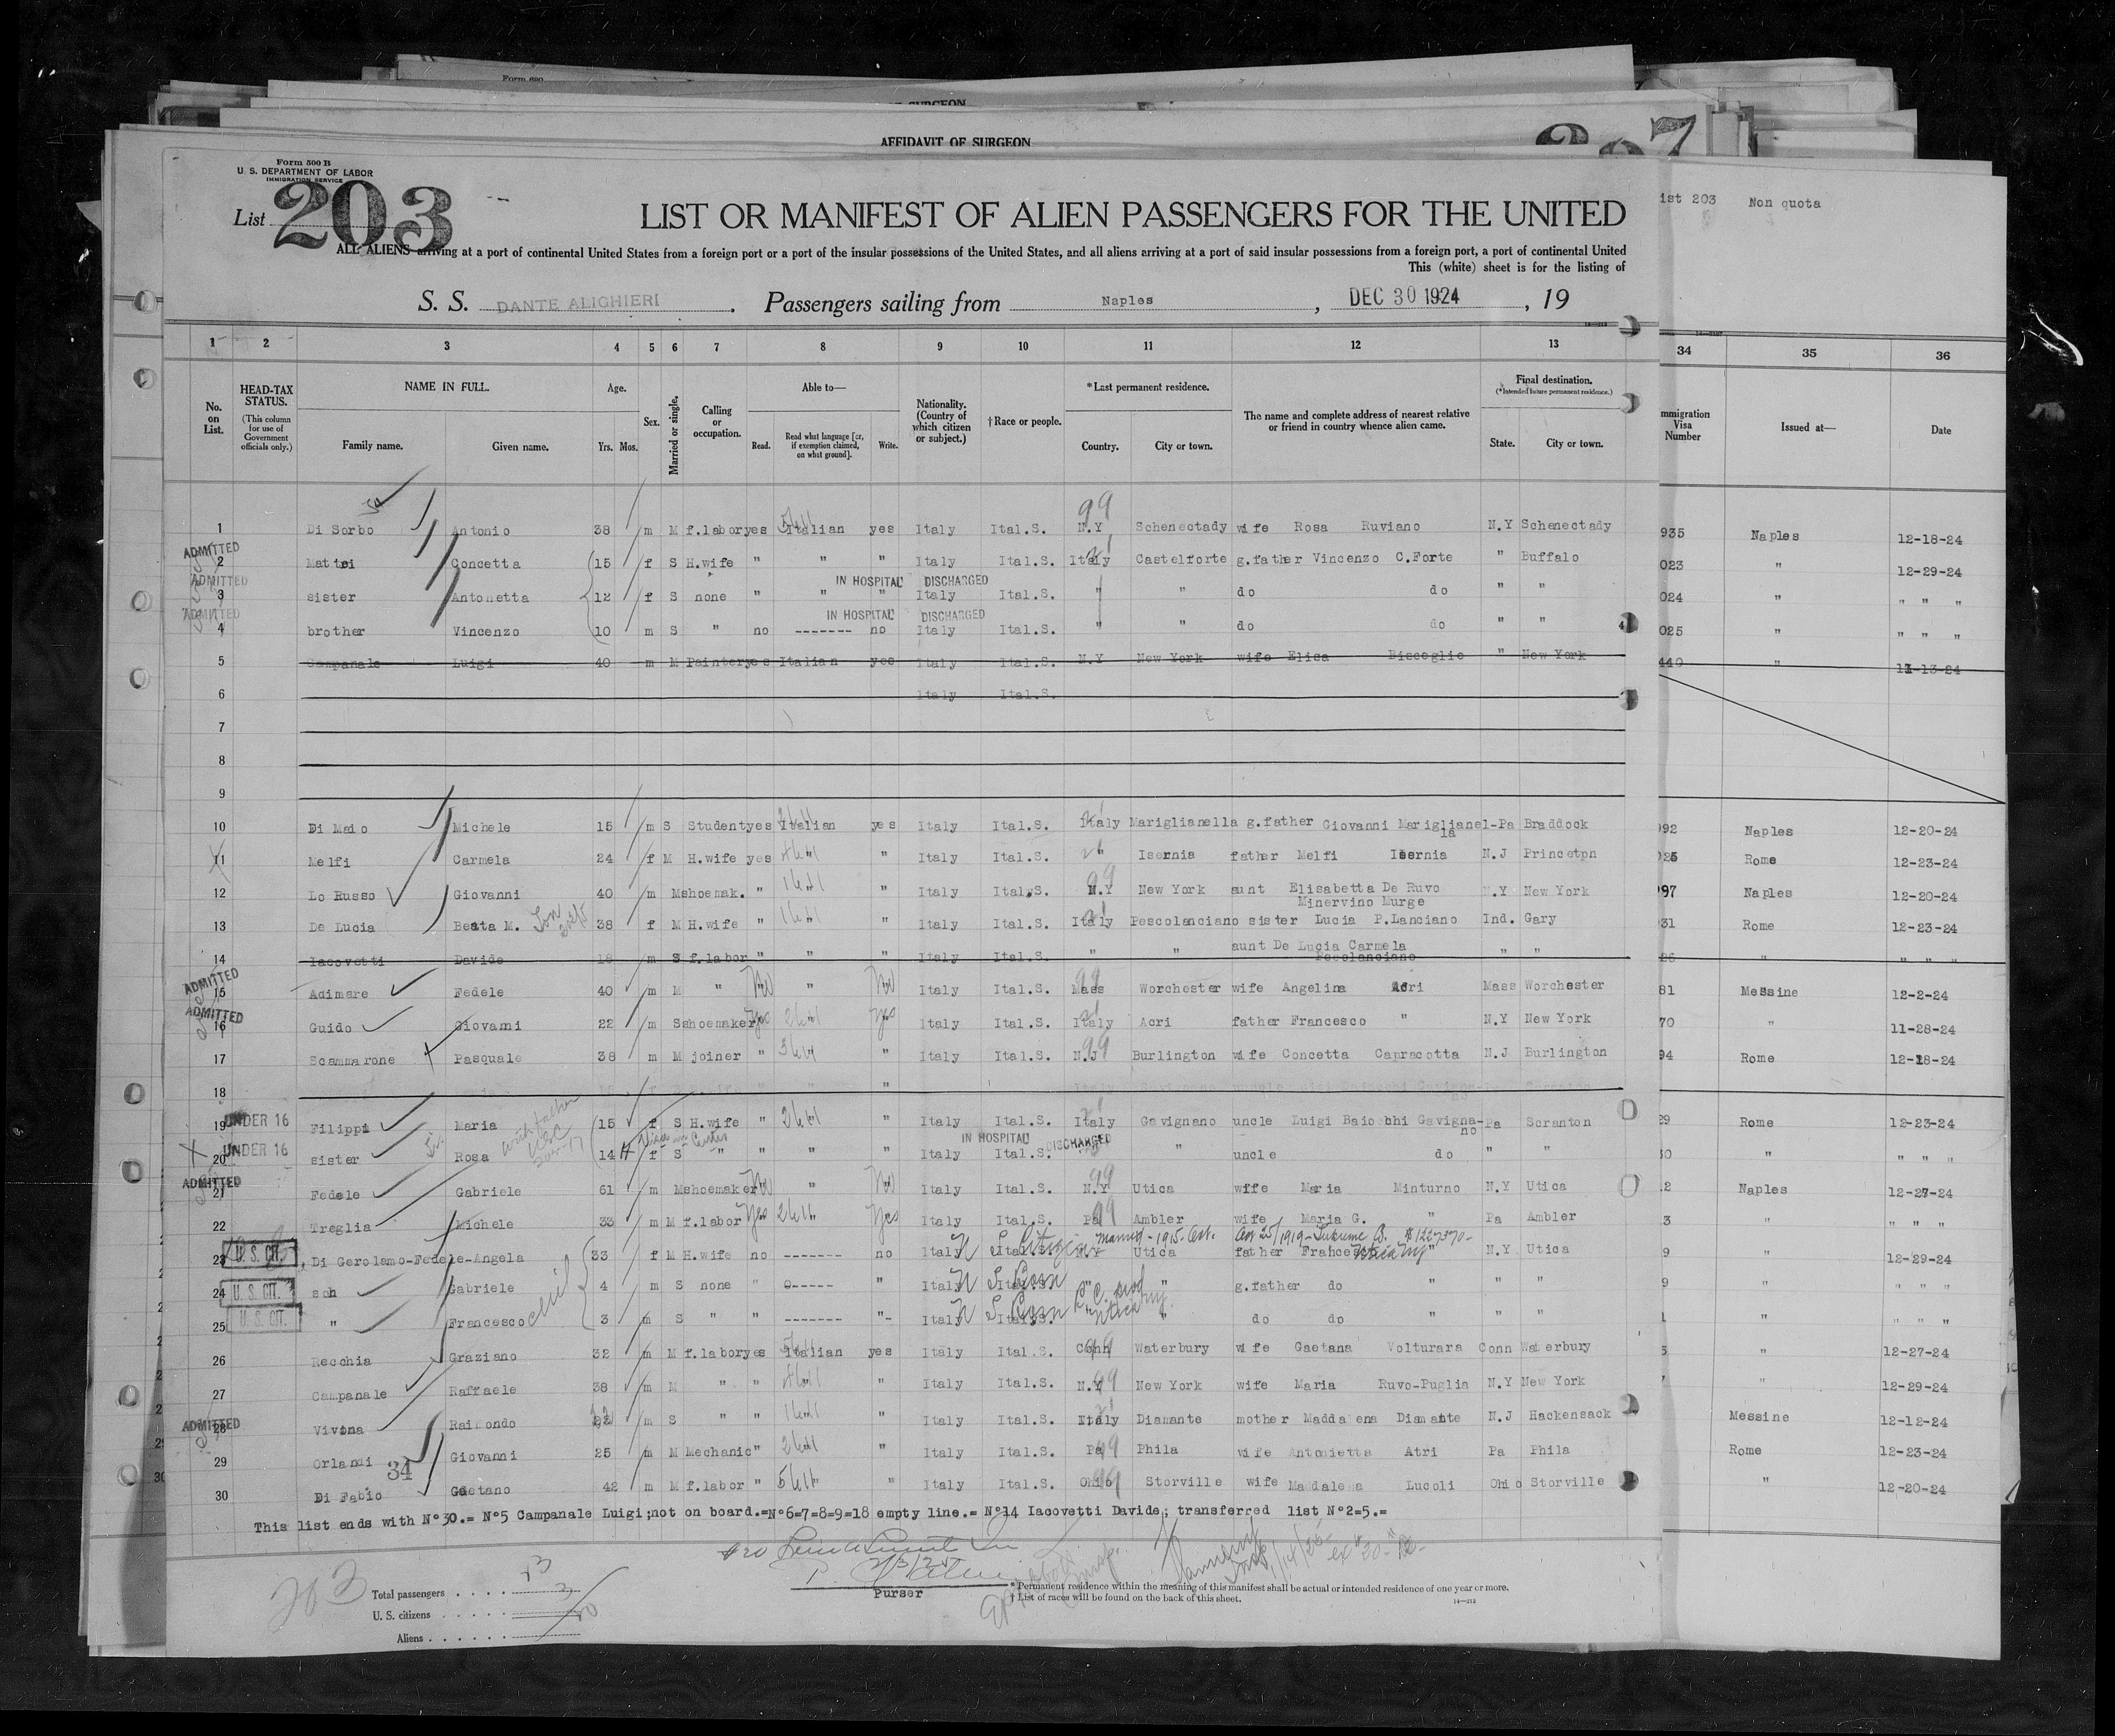 Form 690
AFFIDAVIT OF SURGEON
Form 500 B
U. S. DEPARTMENT OF LABOR
IMMIGRATION SERVICE
List 203
LIST OR MANIFEST OF ALIEN PASSENGERS FOR THE UNITED
ist 203 Non quota
ALL ALIENS arriving at a port of continental United States from a foreign port or a port of the insular possessions of the United States, and all aliens arriving at a port of said insular possessions from a foreign port, a port of continental United
This (white) sheet is for the listing of
S. S. DANTE ALIGHIERI . Passengers sailing from Naples , DEC 30 1924 , 19
1 2 3 4 5 6 7 8 9 10 11 12 13 34 35 36
No. on List. HEAD-TAX STATUS. (This column for use of Government officials only.) NAME IN FULL. Family name. Given name. Age. Yrs. Mos. Sex. Married or single. Calling or occupation. Able to— Read. Read what language [or, if exemption claimed, on what ground]. Write. Nationality. (Country of which citizen or subject.) †Race or people. *Last permanent residence. Country. City or town. The name and complete address of nearest relative or friend in country whence alien came. Final destination. (*Intended future permanent residence.) State. City or town. mmigration Visa Number Issued at— Date
1 Di Sorbo Antonio 38 m M f.labor yes Italian yes Italy Ital.S. N.Y Schenectady wife Rosa Ruviano N.Y Schenectady 935 Naples 12-18-24
ADMITTED 2 Mattei Concetta 15 f S H.wife " " " Italy Ital.S. Italy Castelforte g.father Vincenzo C.Forte " Buffalo 023 " 12-29-24
IN HOSPITAL DISCHARGED
ADMITTED 3 sister Antonetta 12 f S none " " " Italy Ital.S. " " do do " " 024 " " " "
IN HOSPITAL DISCHARGED
ADMITTED 4 brother Vincenzo 10 m S " no ------- no Italy Ital.S. " " do do " " 025 " " " "
5 Campanale Luigi 40 m M Painter yes Italian yes Italy Ital.S. N.Y New York wife Elisa Bisceglie " New York 440 " 11-13-24
6 Italy Ital.S.
7
8
9
10 Di Maio Michele 15 m S Student yes Italian yes Italy Ital.S. Italy Mariglianella g.father Giovanni Mariglianel-la Pa Braddock 092 Naples 12-20-24
11 Melfi Carmela 24 f M H.wife yes " " Italy Ital.S. " Isernia father Melfi Isernia N.J Princetpn 025 Rome 12-23-24
12 Lo Russo Giovanni 40 m M shoemak. " " " Italy Ital.S. N.Y New York aunt Elisabetta De Ruvo Minervino Murge N.Y New York 997 Naples 12-20-24
13 De Lucia Beata M. 38 f M H.wife " " " Italy Ital.S. Italy Pescolanciano sister Lucia P.Lanciano Ind. Gary 31 Rome 12-23-24
14 Iacovetti Davide 18 m S f.labor " " " Italy Ital.S. " " aunt De Lucia Carmela Pescolanciano " " 26 " " " "
ADMITTED 15 Adimare Fedele 40 m M " No " No Italy Ital.S. Mass Worchester wife Angelina Acri Mass Worchester 81 Messine 12-2-24
ADMITTED 16 Guido Giovanni 22 m S shoemaker Yes Yes Italy Ital.S. Italy Acri father Francesco " N.Y New York 70 " 11-28-24
17 Scammarone Pasquale 38 m M joiner " " Italy Ital.S. N.J Burlington wife Concetta Capracotta N.J Burlington 94 Rome 12-18-24
18
UNDER 16 19 Filippi Maria 15 f S H.wife " " Italy Ital.S. Italy Gavignano uncle Luigi Baiocchi Gavigna-no Pa Scranton 29 Rome 12-23-24
IN HOSPITAL DISCHARGED
UNDER 16 20 sister Rosa 14 f S " " " " Italy Ital.S. " uncle do " " 30 " " " "
ADMITTED 21 Fedele Gabriele 61 m M shoemaker No " No Italy Ital.S. N.Y Utica wife Maria Minturno N.Y Utica 2 Naples 12-27-24
22 Treglia Michele 33 m M f.labor Yes " Yes Italy Ital.S. Pa Ambler wife Maria G. " Pa Ambler 3 " " " "
U. S. CIT. 23 Di Gerolamo-Fedele-Angela 33 f M H.wife no ------- no Italy Utica father Francesco " N.Y Utica 9 " 12-29-24
U. S. CIT. 24 son Gabriele 4 m S none " ----- " Italy " g.father do " " " 9 " " " "
U. S. CIT. 25 " Francesco 3 m S " " ------- "- Italy " do do " " " 1 " " " "
26 Recchia Graziano 32 m M f.labor yes Italian yes Italy Ital.S. Conn Waterbury wife Gaetana Volturara Conn Waterbury 5 " 12-27-24
27 Campanale Raffaele 38 m M " " " Italy Ital.S. N.Y New York wife Maria Ruvo-Puglia N.Y New York " 12-29-24
ADMITTED 28 Vivona Raimondo m S " " " Italy Ital.S. Italy Diamante mother Maddalena Diamante N.J Hackensack Messine 12-12-24
29 Orlandi Giovanni 25 m M Mechanic " " Italy Ital.S. Pa Phila wife Antonietta Atri Pa Phila Rome 12-23-24
34
30 Di Fabio Gaetano 42 m M f.labor " " " Italy Ital.S. Ohio Storville wife Maddalena Lucoli Ohio Storville " 12-20-24
This list ends with N°30.= N°5 Campanale Luigi;not on board.=N°6=7=8=9=18 empty line.= N°14 Iacovetti Davide; transferred list N°2=5.=
Purser
203
Total passengers
U. S. citizens
Aliens
*Permanent residence within the meaning of this manifest shall be actual or intended residence of one year or more.
†List of races will be found on the back of this sheet.
14—212